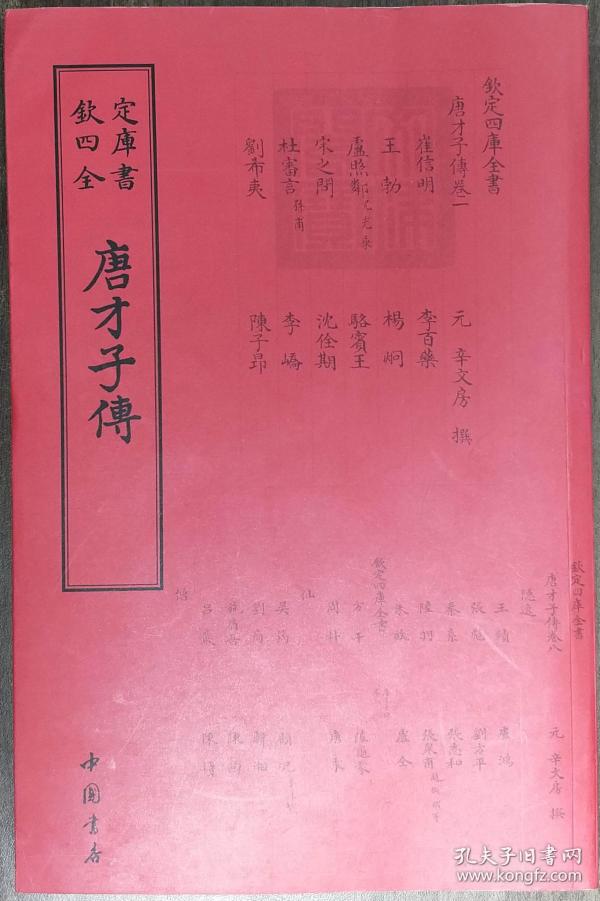 欽定四庫全書
唐才子傳卷二
元 辛文房 撰
崔信明 李百藥
王勃 楊炯
盧照鄰 駱賓王
宋之問 沈佺期
杜審言 李嶠
劉希夷 陳子昂
欽定四庫全書
唐才子傳
中國書店
欽定四庫全書
唐才子傳卷八
元 辛文房 撰
隱逸
王績 盧鴻
張彪 劉方平
秦系 張志和
陸羽
朱放 盧仝
欽定四庫全書
方干
周朴
仙
吳筠
呂巖
孔夫子旧书网
www.kongfz.com